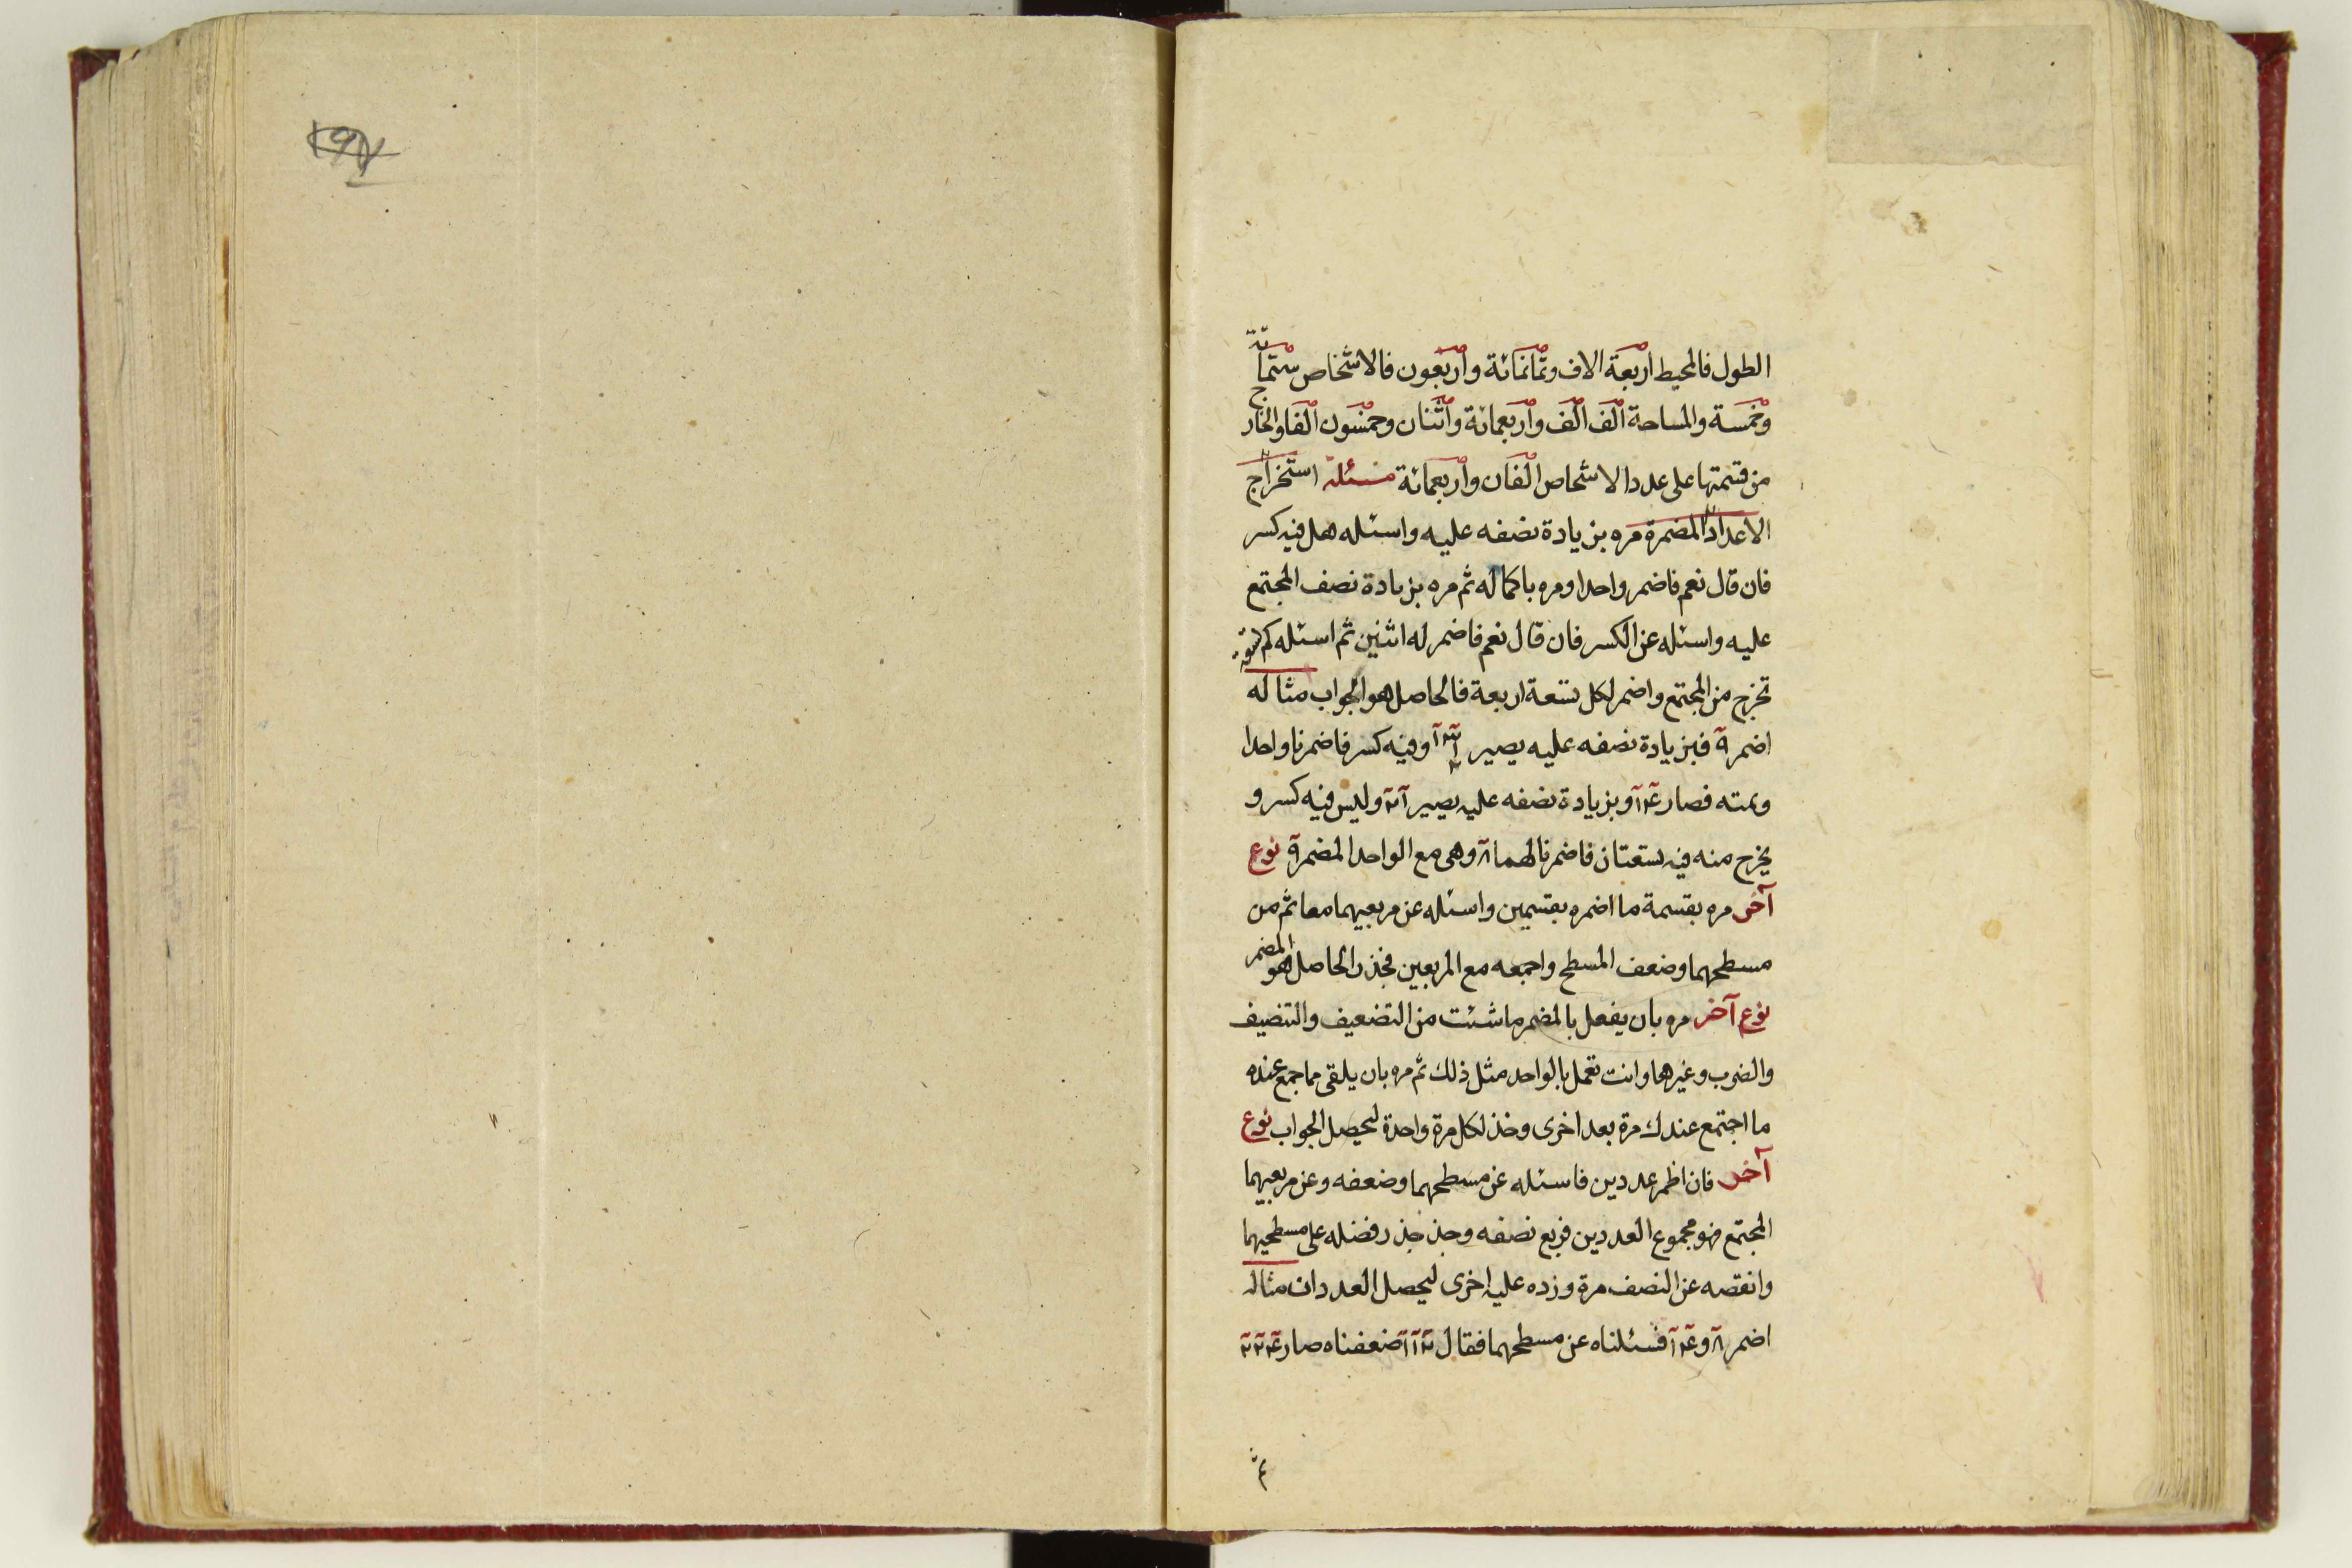 الطول فالمحيط اربعة الاف وثمانمائة واربعون فالاشخاص ستمائة
وخمسة والمساحة الف الف واربعمائة واثنان وخمسون الفا والخارج
من قسمتها على عدد الاشخاص الفان واربعمائة مسئلة استخراج
الاعداد المضمرة مره بزيادة نصفه عليه واسئله هل فيه كسر
فان قال نعم فاضمر واحدا ومره باكماله ثم مره بزيادة نصف المجتمع
عليه واسئله عن الكسر فان قال نعم فاضمر له اثنين ثم اسئله كم تسعة
تخرج من المجتمع واضمر لكل تسعة اربعة فالحاصل هو الجواب مثاله
اضمر ٩ فبزيادة نصفه عليه يصير وفيه كسر فاضمرنا واحدا
وتمته فصار ١٤ وبزيادة نصفه عليه يصير ٢١ وليس فيه كسر و
يخرج منه فيه تسعتان فاضمرنا لهما ٨ وهى مع الواحد المضمر ٩ نوع
آخر مره بقسمة ما اضمره بقسمين واسئله عن مربعيهما معا ثم من
مسطحهما وضعف المسطح واجمعه مع المربعين فجذر الحاصل هو المضمر
نوع آخر مره بان يفعل بالمضمر ما شئت من التضعيف والتنصيف
والضرب وغيرهما وانت تعمل بالواحد مثل ذلك ثم مره بان يلقى مما جمع عنده
ما اجتمع عندك مرة بعد اخرى وخذ لكل مرة واحدة ليحصل الجواب نوع
آخر فان اظمر عددين فاسئله عن مسطحهما وضعفه وعن مربعيهما
المجتمع فهو مجموع العددين فربع نصفه وجذ جذر فضله على مسطحيهما
وانقصه عن النصف مرة وزده عليه اخرى ليحصل العددان مثاله
اضمر ٨ و ١٤ فسئلناه عن مسطحهما فقال ١١٢ ضعفناه صار ٢٢٤